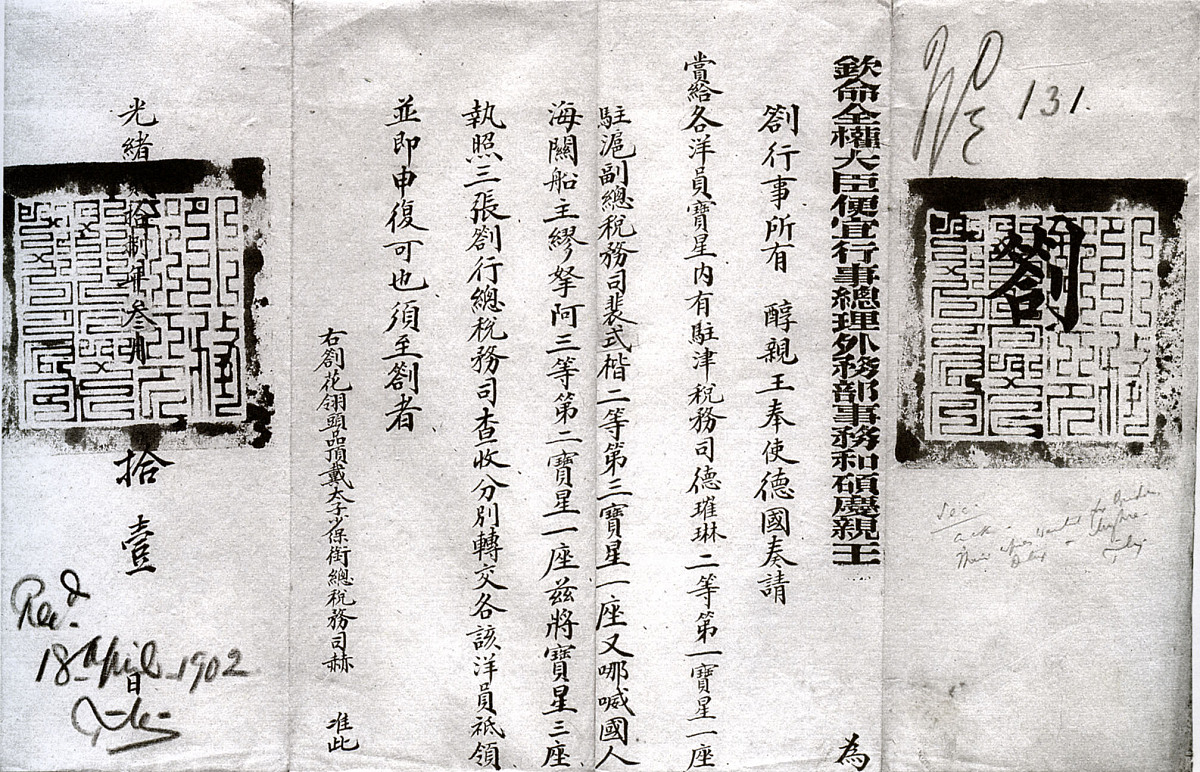 131.
劄
欽命全權大臣便宜行事總理外務部事務和碩慶親王 為
劄行事所有 醇親王奉使德國奏請
賞給各洋員寶星內有駐津稅務司德璀琳二等第一寶星一座
駐滬副總稅務司裴式楷二等第三寶星一座又哪喊國人
海關船主繆拏阿三等第二寶星一座茲將寶星三座
執照三張劄行總稅務司查收分別轉交各該洋員祗領
並即申復可也須至劄者
右劄花翎頭品頂戴太子少保銜總稅務司赫 准此
光緒 拾捌年叁月 拾壹 日
Rec.d
18 April 1902